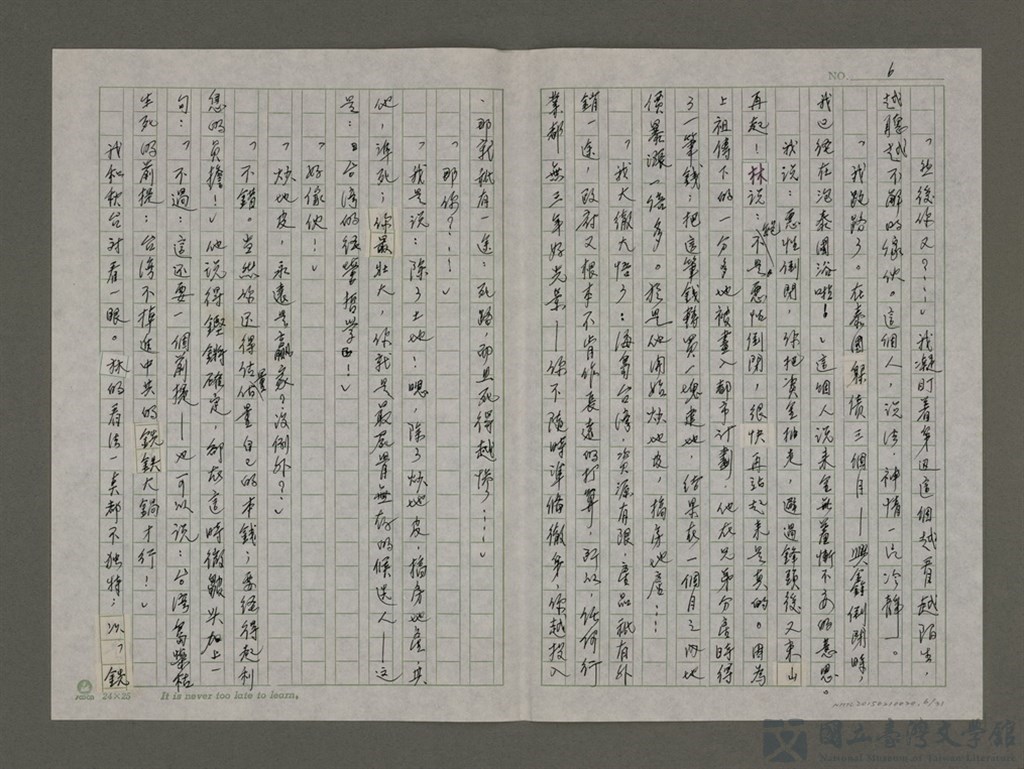 NO. 6
「然後你又？……」我凝盯着身邊這個越看越陌生，
越聽越不解的傢伙。這個人，說法、神情一片冷靜——。
「我跑路了。在泰國躲債三個月——興鑫倒閉時，
我已經在泡泰國浴啦！」這個人說來全無羞慚不安的意思。
我說：惡性倒閉，你把資金抽走，避過鋒頭後又東山
再起！林說：絕不是惡性倒閉，很快再站起來是真的。因為
上祖傳下的一分多地被畫入都市計劃，他在兄弟分產時得
了一筆錢；把這筆錢轉買一塊建地，結果在一個月之內地
價暴漲一倍多。於是他開始炒地皮，搞房地產……
「我大徹大悟了：海島台灣，資源有限，產品祇有外
銷一途，政府又根本不肯作長遠的打算，所以，任何行
業都無三年好光景——你不隨時準備徹身，你越投入
、那就祇有一途：死路，而且死得越慘……」
「那你？……」
「我是說：除了土地！嗯，除了炒地皮，搞房地產，其
他，準死；你最壯大，你就是最死的候選人——這
是：『台灣的經營哲學』！」
「好傢伙！」
「炒地皮，永遠是贏家？沒例外？」
「不錯。當然你還得估量自己的本錢；要經得起利
息的負擔！」他說得鏗鏘確定，卻在這時微皺眉加上一
句：「不過：這還要一個前提——也可以說：台灣島榮枯
生死的前提：台灣不掉進中共的銑鉄大鍋才行！」
我和秋台對看一眼。林的看法一點都不獨特；以「銑
PASCO 24×25 It is never too late to learn.
國立臺灣文學館
National Museum of Taiwan Literature